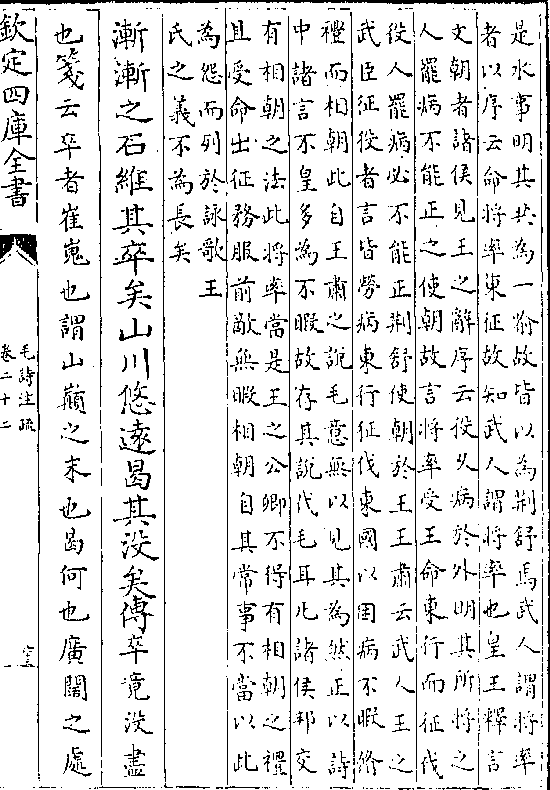 是水事明其共為一喻故皆以為荆舒焉武人謂將率
者以序云命將率東征故知武人謂將率也皇王釋言
文朝者諸侯見王之辭序云役久病於外明其所將之
人罷病不能正之使朝故言將率受王命東行而征伐
役人罷病必不能正荆舒使朝於王王肅云武人王之
武臣征役者言皆勞病東行征伐東國以困病不暇脩
禮而相朝此自王肅之說毛意無以見其為然正以詩
中諸言不皇多為不暇故存其說代毛耳凡諸侯邦交
有相朝之法此將率當是王之公卿不得有相朝之禮
且受命出征務服前敵無暇相朝自其常事不當以此
為怨而列於詠歌王
氏之義不為長矣
漸漸之石維其卒矣山川悠遠曷其没矣傳卒竟没盡
也箋云卒者崔嵬也謂山巔之末也曷何也廣闊之處
欽定四庫全書
毛詩注疏
卷二十二